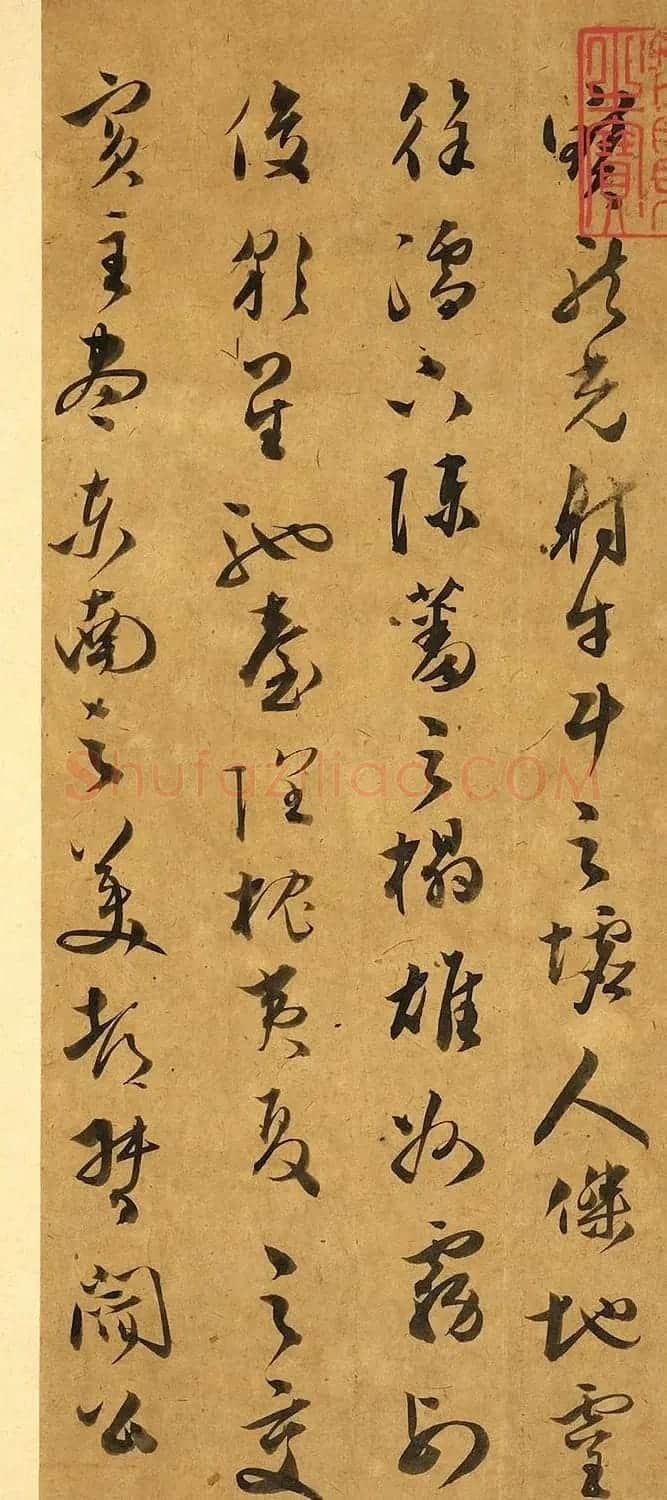 寶龍光射牛斗之墟人傑地靈
徐孺下陳蕃之榻雄州霧列
俊彩星馳臺隍枕夷夏之交
賓主盡東南之美都督閻公
Shufaziliao.COM